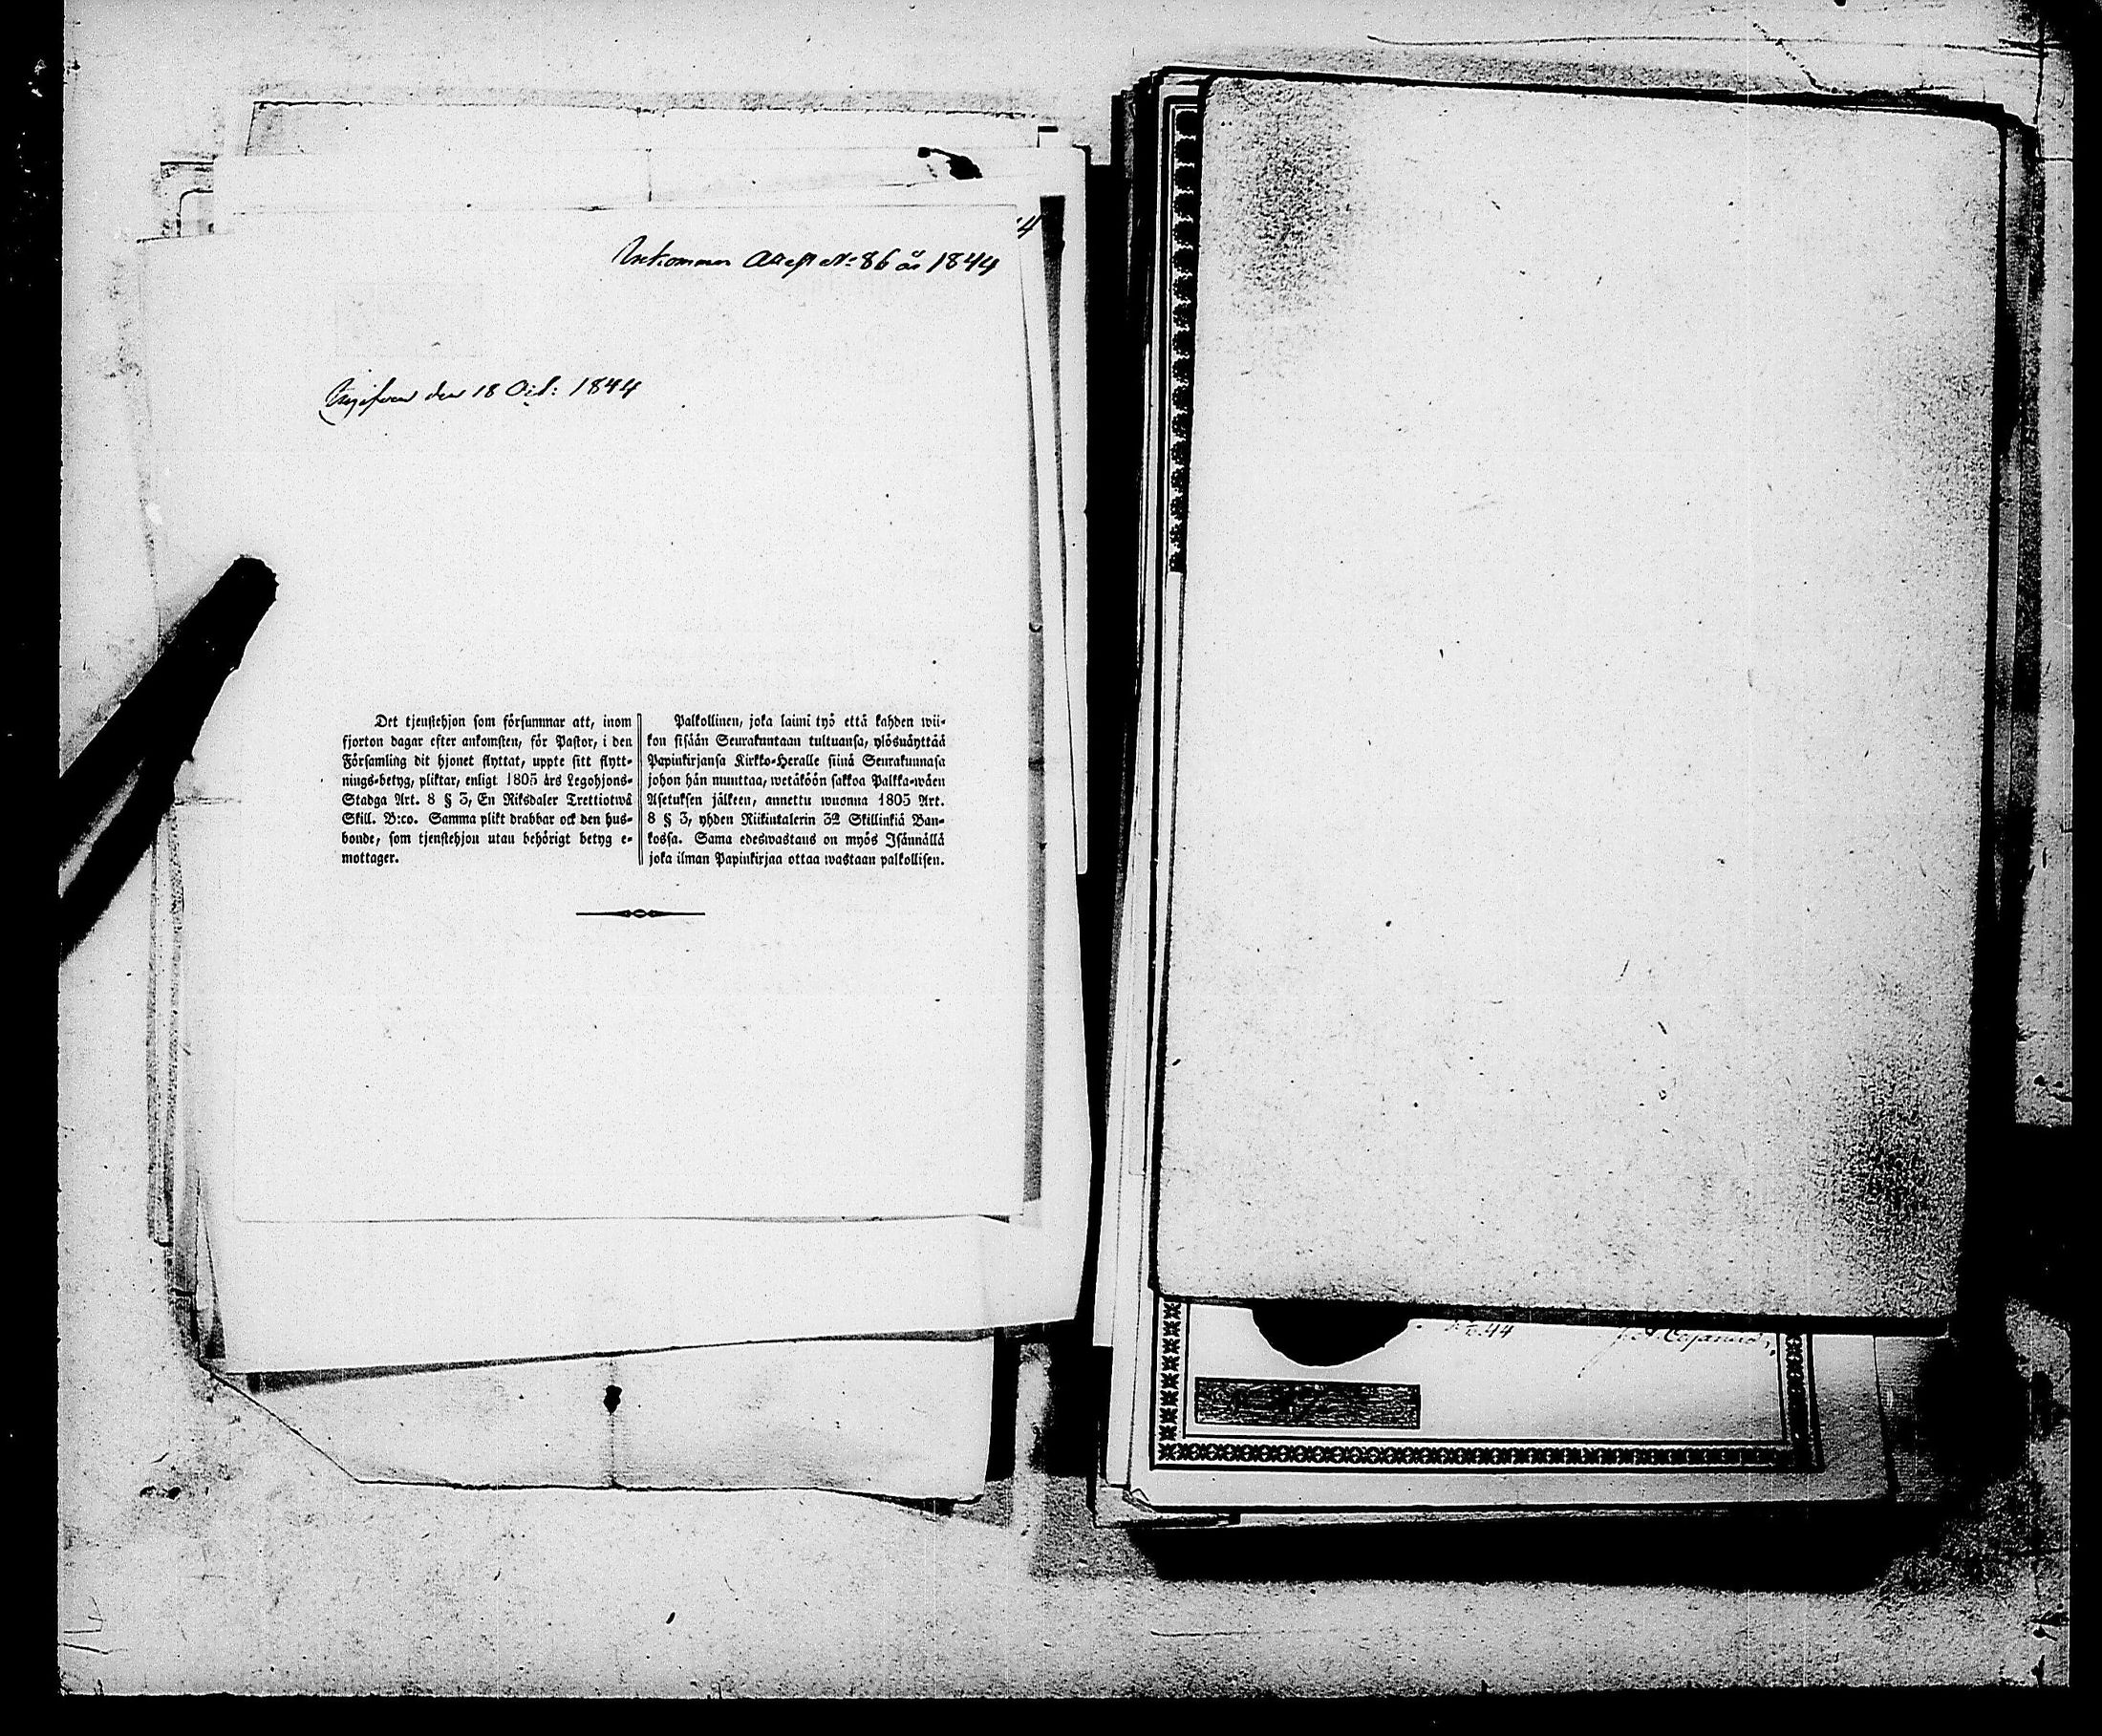 4
Inkommen Attest No 86 år 1844
Uppgifven den 18 Oct: 1844
Det tjenstehjon som försummar att, inom
fjorton dagar efter ankomsten, för Pastor, i den
Församling dit hjonet flyttat, uppte sitt flytt-
nings-betyg, pliktar, enligt 1805 års Legohjons-
Stadga Art. 8 § 3, En Riksdaler Trettiotwå
Skill. B:co. Samma plikt drabbar ock den hus-
bonde, som tjenstehjon utan behörigt betyg e-
mottager.
Palkollinen, joka laimi lyö että kahden wii-
kon sisään Seurakuntaan tultuansa, ylösnäyttää
Papinkirjansa Kirkko-Heralle siinä Seurakunnasa
johon hän muuttaa, wetäköön sakkoa Palkka-wäen
Asetuksen jälkeen, annettu wuonna 1805 Art.
8 § 3, yhden Riikintalerin 32 Skillinkiä Ban-
kossa. Sama edeswastaus on myös Isännällä
joka ilman Papinkirjaa ottaa wastaan palkollisen.
44